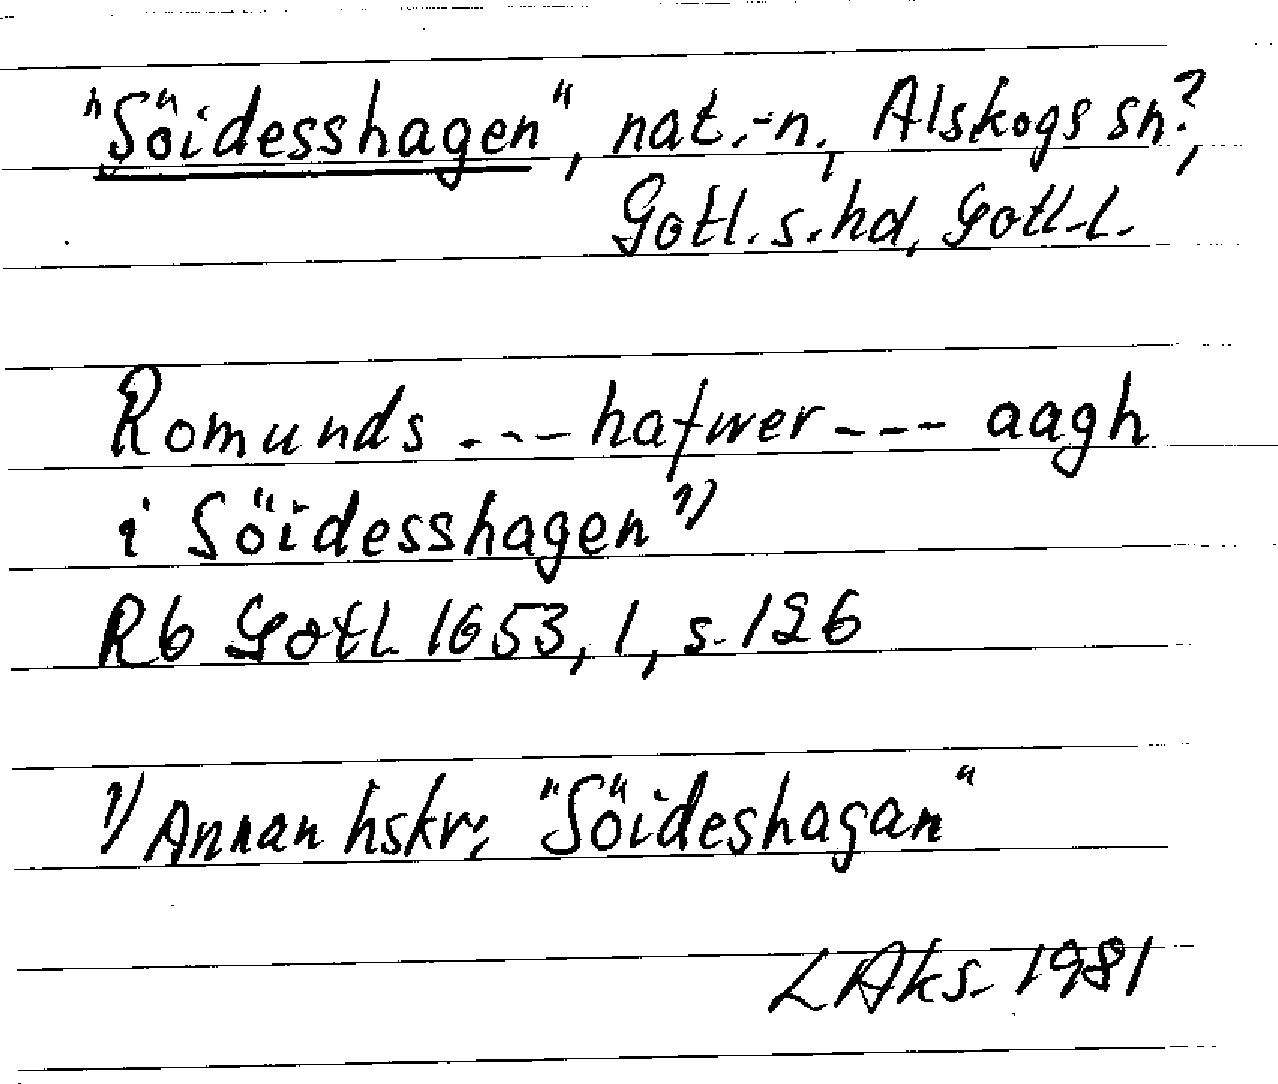 "Söidesshagen", nat.-n., Alskogs sn?,
Gotl. s. hd, Gotl. l.
Romunds --- hafwer --- aagh
i Söidesshagen 1)
Rb Gotl 1653, 1, s. 126
1) Annan hskr: "Söideshagan"
LAks. 1981